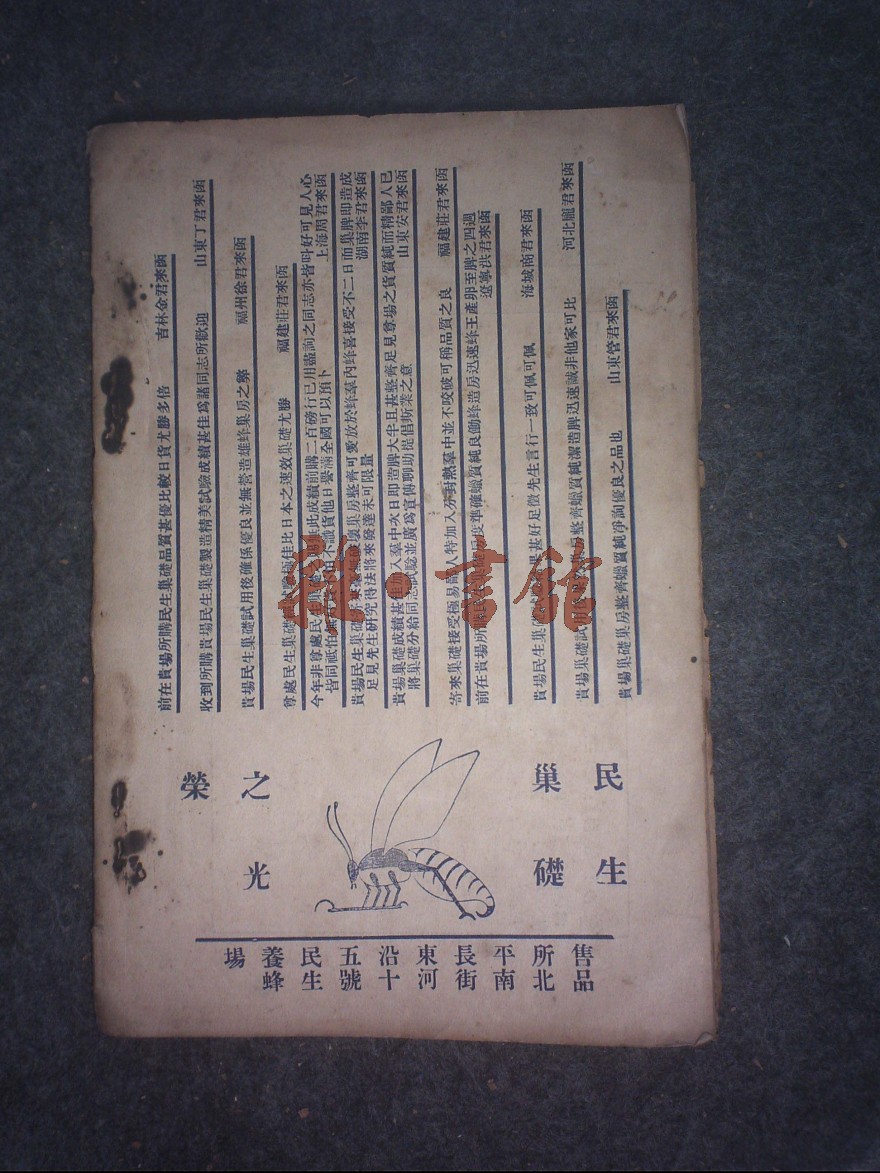 民生
巢礎
之光
榮
前在貴場所購民生巢礎品質甚優比較日貨尤勝多倍 吉林金君來函
收到所購貴場民生巢礎製造精美試驗成績甚佳爲諸同志所歡迎 山東丁君來函
貴場民生巢礎試用後確係優良並無營造雄蜂巢房之弊 福州徐君來函
尊處民生巢礎 極佳比日本之速效巢礎尤勝 福建莊君來函
今年非尊處民生巢 此成績前購二百磅行已用盡詢之同志亦皆呌好可見人心
皆同祗怕無 不認貨他日譽滿全國可以預卜 上海周君來函
貴場民生巢礎 巢房整齊可愛放於蜂羣內蜂喜接受不二日而巢脾即造成
足見先生研究得法將來發達未可限量 湖南李君來函
貴場巢礎成績甚佳加入羣中次日即造脾大半且甚整齊足見尊場之貨質純而精鄙人已
將巢礎分給同志試驗並廣爲宣傳聊助提倡斯業之意 山東安君來函
寄來巢礎接受極易鄙人特加入外封熱羣中並不咬破可稱品質之良 福建莊君來函
前在貴場所購民 度準確蠟質純良勵蜂造房迅速蜂王產卵至脾之四週
遼寧洪君來函
貴場民生巢礎 果甚好足徵先生言行一致可佩可佩 海城南君來函
貴場巢礎試用 房整齊蠟質純潔造脾迅速誠非他家可比 河北龐君來函
貴場巢礎巢房整齊蠟質純淨詢優良之品也 山東管君來函
售品
所北
平南
長街
東河
沿十
五號
民生
養蜂
場
雜·書館